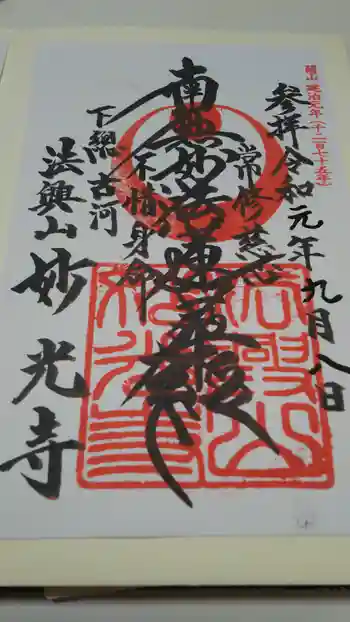 開山 建治元年(一二七五年)
参拝令和元年九月八日
常修慈悲
南無妙法蓮華経
不惜身命
下總古河
法興山妙光寺